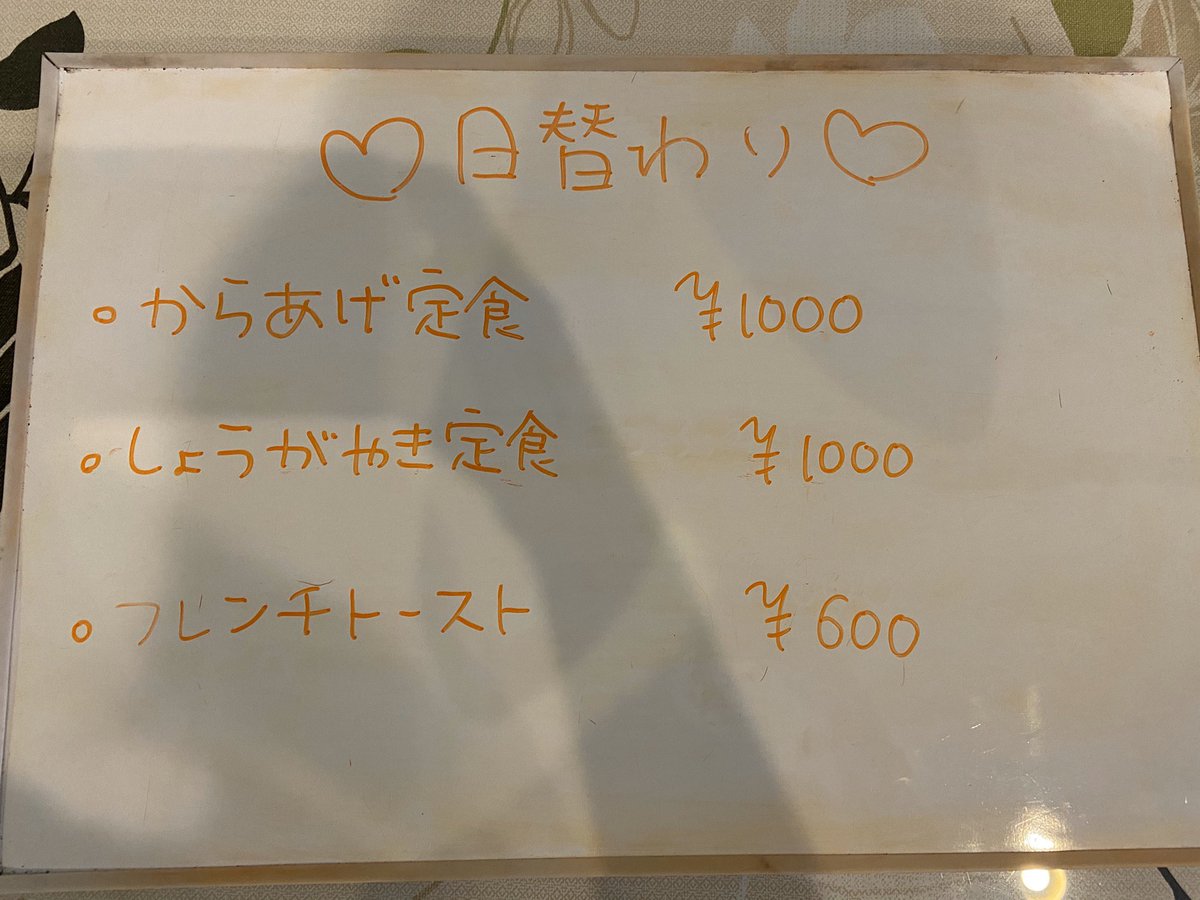 ♡日替わり♡
。からあげ定食 ¥1000
。しょうがやき定食 ¥1000
。フレンチトースト ¥600